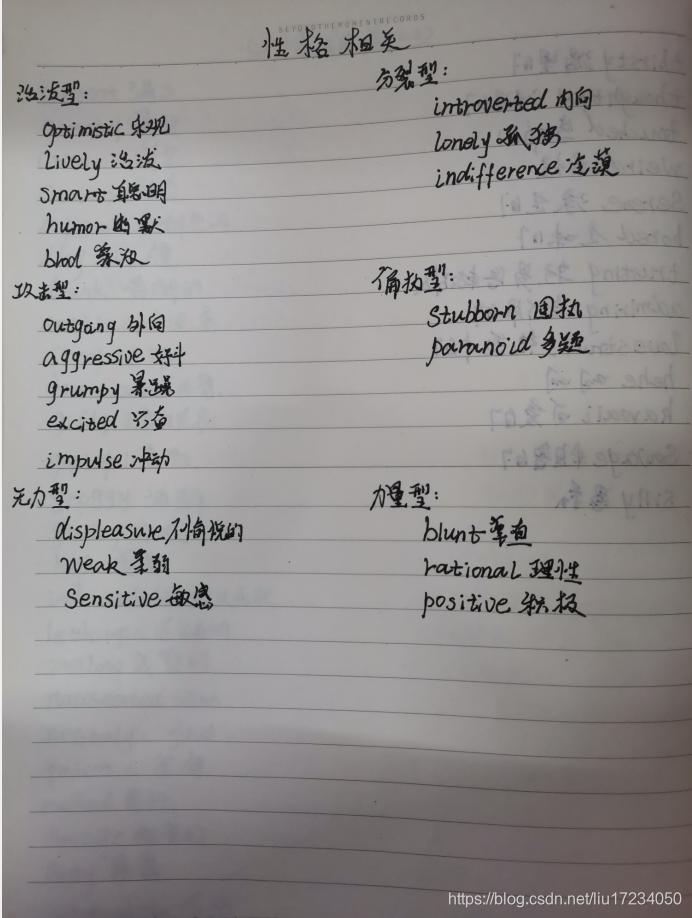 BEYONDTHEMOMENTRECORDS
性格相关
活泼型:
optimistic 乐观
lively 活泼
smart 聪明
humor 幽默
brod 豪放
攻击型:
outgoing 外向
aggressive 好斗
grumpy 暴躁
excited 兴奋
impulse 冲动
无力型:
displeasure 不愉悦的
weak 柔弱
sensitive 敏感
分裂型:
introverted 内向
lonely 孤独
indifference 冷漠
偏执型:
stubborn 固执
paranoid 多疑
力量型:
blunt 率直
rational 理性
positive 积极
https://blog.csdn.net/liu17234050